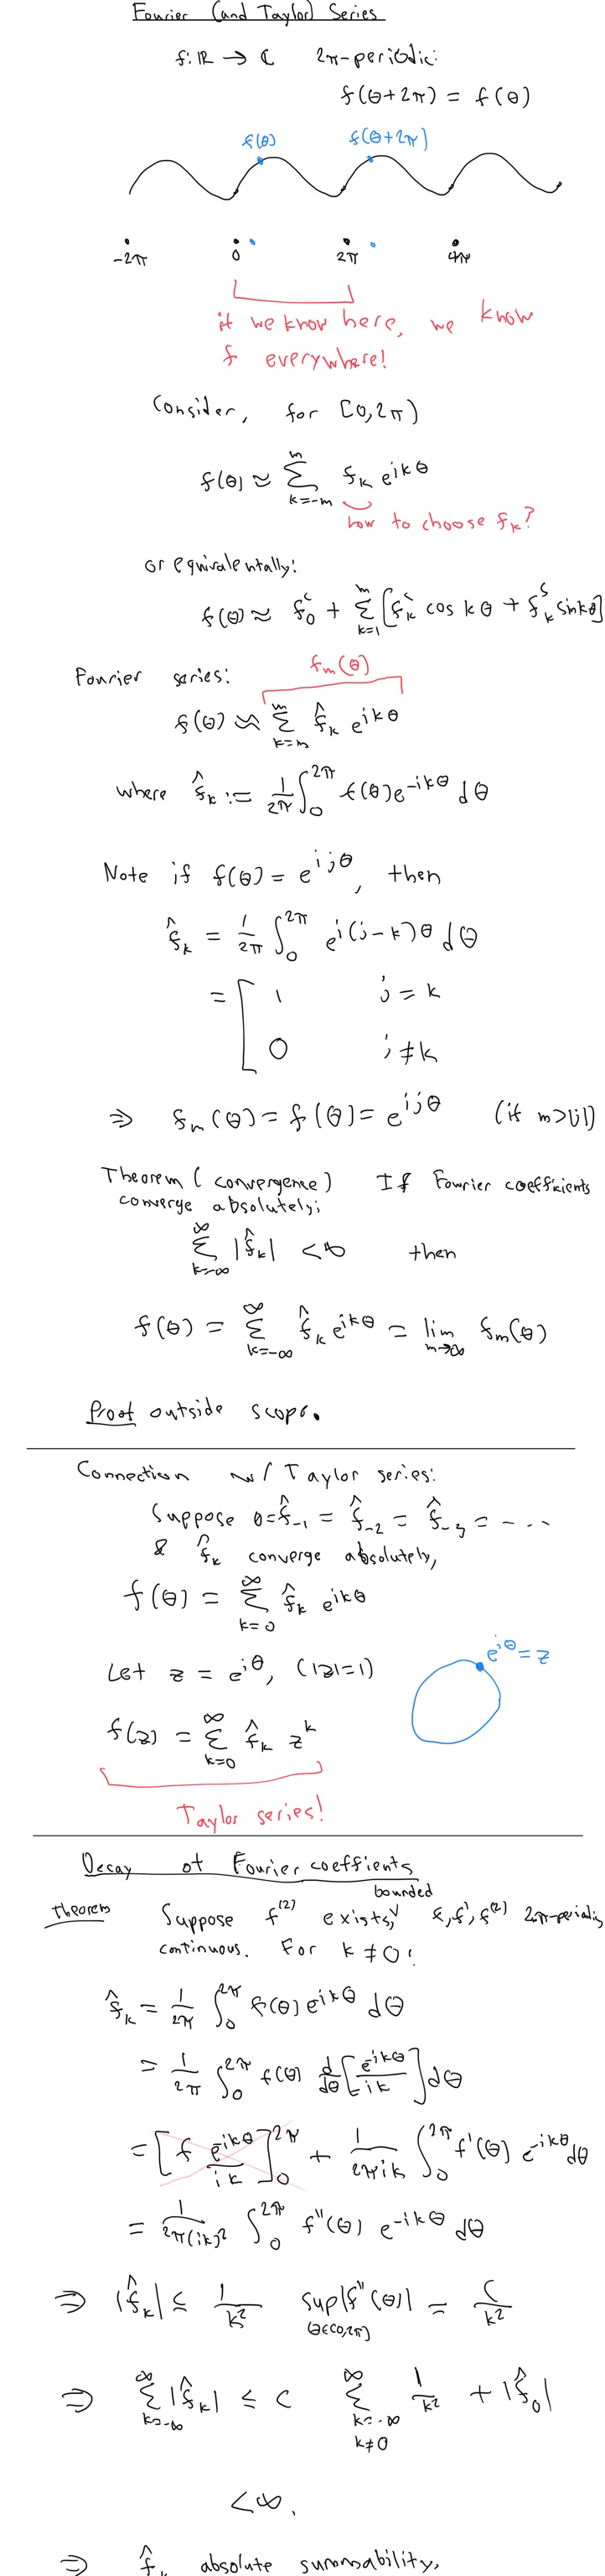 Fourier (and Taylor) Series
f: ℝ → ℂ 2π-periodic:
f(θ+2π) = f(θ)
f(θ) f(θ+2π)
-2π 0 2π 4π
if we know here, we know
f everywhere!
Consider, for [0,2π)
f(θ) ≈ ∑_{k=-m}^{m} f_k e^{ikθ}
how to choose f_k?
or equivalentally:
f(θ) ≈ f_0^c + ∑_{k=1}^{m} [f_k^c cos kθ + f_k^s sin kθ]
Fourier series: f_m(θ)
f(θ) ≈ ∑_{k=m}^{m} f̂_k e^{ikθ}
where f̂_k := 1/2π ∫_0^{2π} f(θ)e^{-ikθ} dθ
Note if f(θ) = e^{ijθ}, then
f̂_k = 1/2π ∫_0^{2π} e^{i(j-k)θ} dθ
= [ 1 j = k
0 j ≠ k
⇒ f_m(θ) = f(θ) = e^{ijθ} (if m>|j|)
Theorem (convergence) If Fourier coefficients
converge absolutely:
∑_{k=-∞}^{∞} |f̂_k| < ∞ then
f(θ) = ∑_{k=-∞}^{∞} f̂_k e^{ikθ} = lim_{m→∞} f_m(θ)
Proof outside scope.
Connection w/ Taylor series:
Suppose 0=f̂_{-1} = f̂_{-2} = f̂_{-3} = ---
& f̂_k converge absolutely,
f(θ) = ∑_{k=0}^{∞} f̂_k e^{ikθ}
Let z = e^{iθ}, (|z|=1)
e^{iθ} = z
f(z) = ∑_{k=0}^{∞} f̂_k z^k
Taylor series!
Decay of Fourier coeffients
bounded
Theorem Suppose f^{(2)} exists, f, f', f^{(2)} 2π-periodic
continuous. For k ≠ 0:
f̂_k = 1/2π ∫_0^{2π} f(θ) e^{ikθ} dθ
= 1/2π ∫_0^{2π} f(θ) d/dθ [e^{-ikθ}/ik] dθ
= [f e^{-ikθ}/ik]_0^{2π} + 1/2πik ∫_0^{2π} f'(θ) e^{-ikθ} dθ
= 1/2π(ik)² ∫_0^{2π} f''(θ) e^{-ikθ} dθ
⇒ |f̂_k| ≤ 1/k² sup_{θ∈[0,2π]} |f''(θ)| = C/k²
⇒ ∑_{k=-∞}^{∞} |f̂_k| ≤ C ∑_{k=-∞, k≠0}^{∞} 1/k² + |f̂_0|
< ∞.
⇒ f̂_k absolute summability.